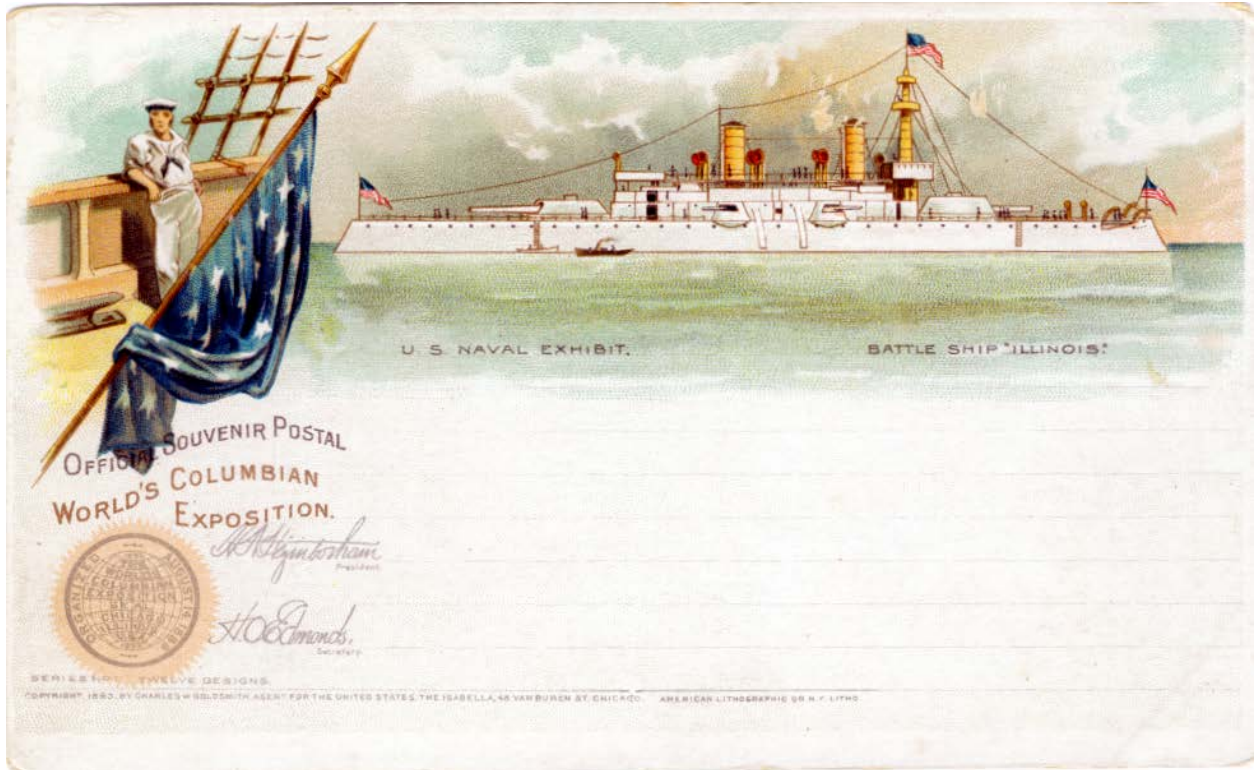 U. S. NAVAL EXHIBIT.
BATTLE SHIP "ILLINOIS."
OFFICIAL SOUVENIR POSTAL
WORLD'S COLUMBIAN
EXPOSITION.
H. N. Higinbotham
President.
H. O. Edmonds.
Secretary.
ORGANIZED AUGUST 14
WORLD'S
COLUMBIAN
EXPOSITION
SERIES TWELVE DESIGNS.
COPYRIGHT 1893, BY CHARLES W GOLDSMITH AGENT FOR THE UNITED STATES, THE ISABELLA, 48 VAN BUREN ST. CHICAGO. AMERICAN LITHOGRAPHIC CO N.Y. LITHO